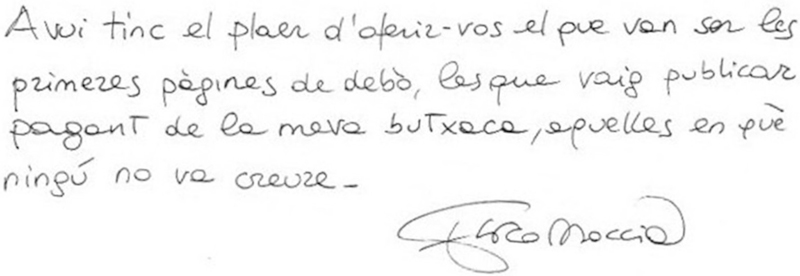 Avui tinc el plaer d'oferir-vos el que van ser les
primeres pàgines de debò, les que vaig publicar
pagant de la meva butxaca, aquelles en què
ningú no va creure -
Federico Moccia